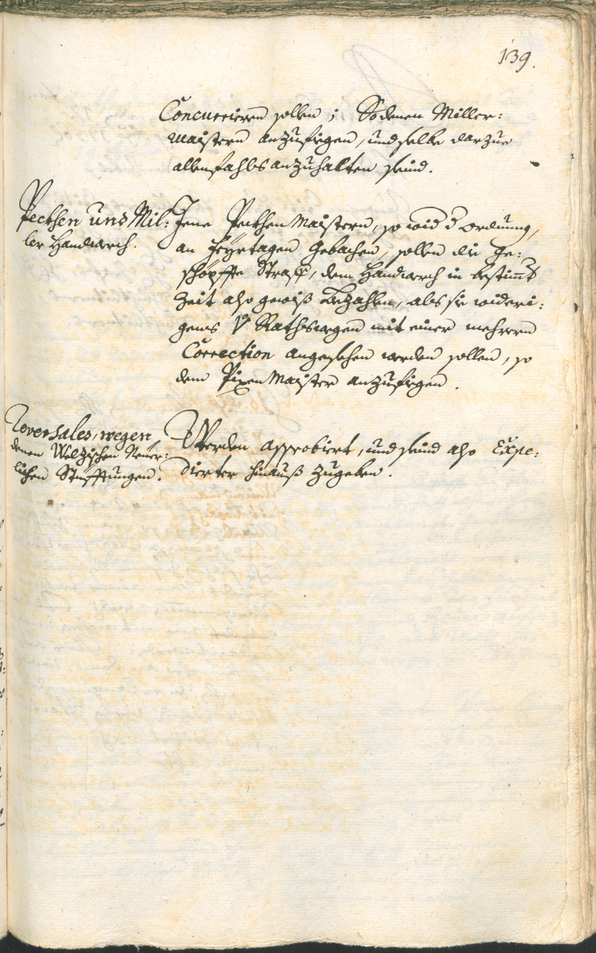 139.
Concurrieren sollen; So denen Miller-
maistern anzufiegen, und selbe darzue
allenfahls anzuhalten seind.
Pecken und Mil-
ler Handwerch.
Jene Pecken Maistern, so wid. d. ordnung,
an Feyrtagen gebachen, sollen die Ge-
schöpffte Straff, dem Handwerch in bestimt.
Zeit also gewiß bezahlen, als sie widri-
gens V. Rathswegen mit einer mehrern
Correction angesehen werden sollen, so
dem Pixen Maister anzufiegen.
Reversales, wegen
denen Wilzischen Neuer-
lichen Stüfftungen.
Werden approbiert, und seind also Expe-
dierter hinauß zugeben.